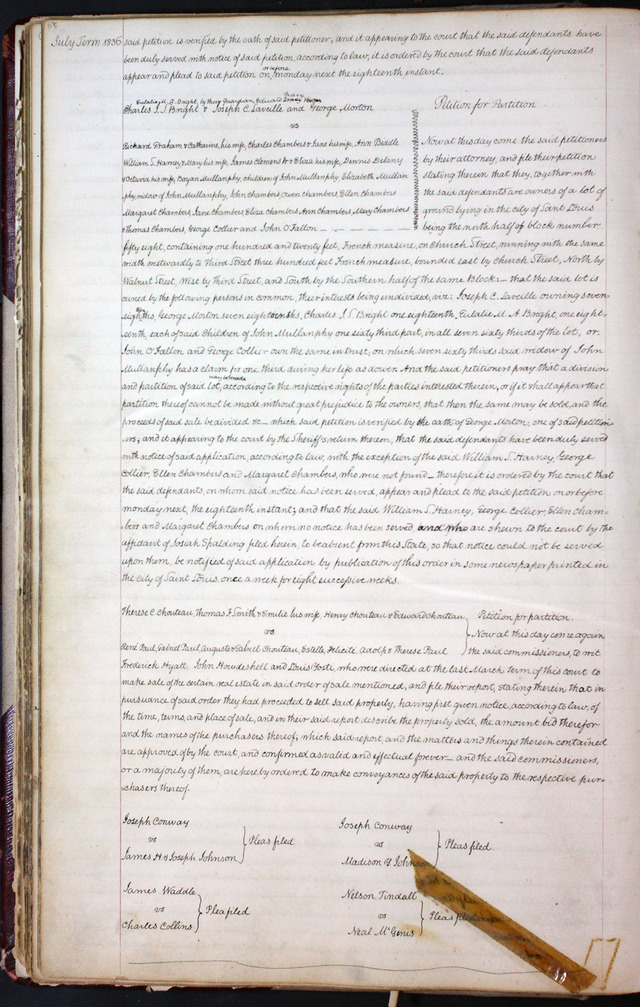 68
July Term 1836
said petition is verified by the oath of said petitioner, and it appearing to the court that the said defendants have
been duly served with notice of said petition, according to law, it is ordered by the court that the said defendants
or before
appear and plead to said petition on monday next the eighteenth instant.
Eulalie M. A. Bright, by their Guardian, Edward
Charles J. S. Bright & Joseph C. Laveille and George Morton
Petition for Partition
vs
Richard Graham & Catharine, his wife, Charles Chambers & Jane his wife, Ann Biddle
William S. Harney & Mary his wife, James Clemens Jr & Eliza his wife, Dennis Delany
& Octavia his wife, Bryan Mullanphy, children of John Mullanphy, Elizabeth Mullan
phy, widow of John Mullanphy, John Chambers Owen Chambers, Ellen Chambers
Margaret Chambers, Jane Chambers, Eliza Chambers, Ann Chambers, Mary Chambers
& Thomas Chambers, George Collier and John O'Fallon
Now at this day come the said petitioners
by their attorney, and file their petition
stating therein that they, together with
the said defendants are owners of a lot of
ground lying in the city of Saint Louis
being the north half of block number
fifty eight, containing one hundred and twenty feet, French measure, on Church Street, running with the same
width westwardly to Third Street three hundred feet French measure, bounded east by Church Street, North by
Walnut Street, West by Third Street, and South by the Southern half of the same Block – that the said lot is
owned by the following persons in common, their interests being undivided, viz: Joseph C. Laveille owning seven
eighteenths, George Morton seven eighteenths, Charles J. S. Bright one eighteenth, Eulalie M. A Bright, one eigh-
teenth, each of said Children of John Mullanphy one sixty third part, in all seven sixty thirds of the lot, or,
John O'Fallon and George Collier own the same in trust, on which seven sixty thirds said widow of John
Mullanphy has a claim for one third during her life as dower. And the said petitioners pray that a division
may be made
and partition of said lot, according to the respective rights of the parties interested therein, or if it shall appear that
partition thereof cannot be made without great prejudice to the owners, that then the same may be sold, and the
proceeds of said sale be divided &c – which said petition is verified by the oath of George Morton, one of said petition
ers, and it appearing to the court by the Sheriff's return thereon, that the said defendants have been duly served
with notice of said application, according to law, with the exception of the said William S. Harney, George
Collier, Ellen Chambers and Margaret Chambers, who were not found – therefore it is ordered by the court that
the said defendants, on whom said notice has been served, appear and plead to the said petition on or before
monday next, the eighteenth instant; and that the said William S. Harney, George Collier, Ellen Cham-
bers and Margaret Chambers on whom no notice has been served and who are shewn to the court by the
affidavit of Josiah Spalding filed herein, to be absent from this State, so that notice could not be served
upon them, be notified of said application by publication of this order in some newspaper printed in
the city of Saint Louis, once a week for eight successive weeks.
Therese C. Chouteau, Thomas F. Smith & Emilie his wife, Henry Chouteau & Edward Chouteau
vs
René Paul, Gabriel Paul, Auguste & Gabriel Chouteau, Estelle, Felicité, Adolp & Therese Paul
Petition for partition.
Now at this day come again
the said commissioners, to wit
Frederick Hyatt, John Howdeshell and Louis Yosti, who were directed at the last March term of this court to
make sale of the certain real estate in said order of sale mentioned, and file their report, stating therein that in
pursuance of said order they had proceeded to sell said property, having first given notice, according to law, of
the time, terms, and place of sale, and in their said report describe the property sold, the amount bid therefor
and the names of the purchasers thereof; which said report and the matters and things therein contained
are approved of by the court, and confirmed as valid and effectual forever – and the said commissioners,
or a majority of them, are hereby ordered to make conveyances of the said property to the respective pur-
chasers thereof.
Joseph Conway
vs
James H. & Joseph Johnson
Pleas filed
Joseph Conway
vs
Madison Y Johnson
Pleas filed.
James Waddle
vs
Charles Collins
Plea filed
Nelson Tindall
vs
Neal McGenis
Pleas filed